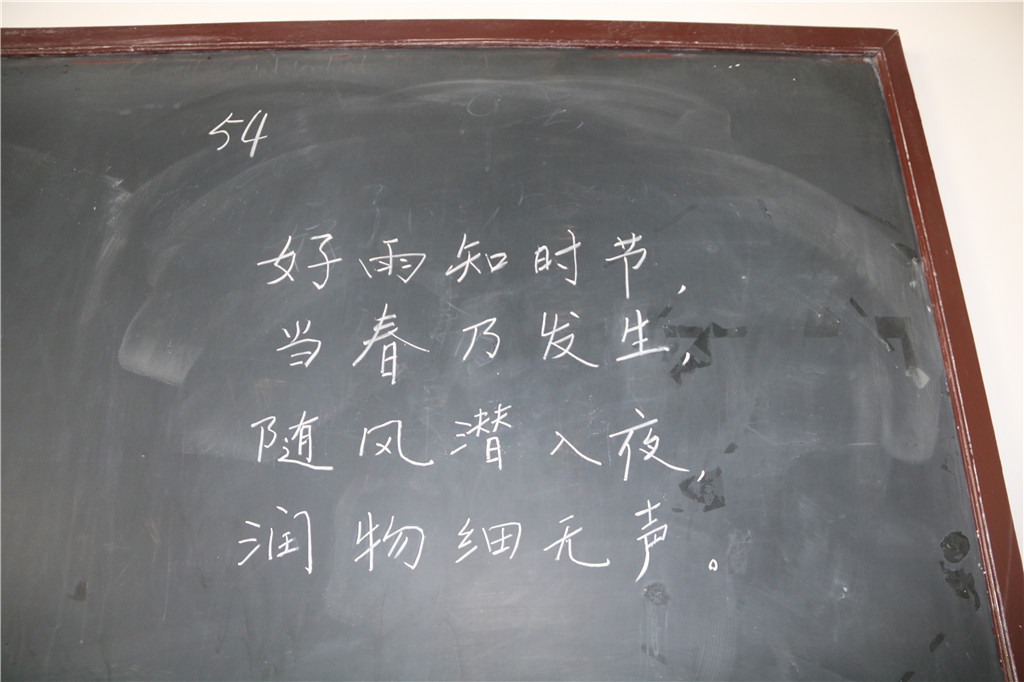 54
好雨知时节,
当春乃发生,
随风潜入夜,
润物细无声。